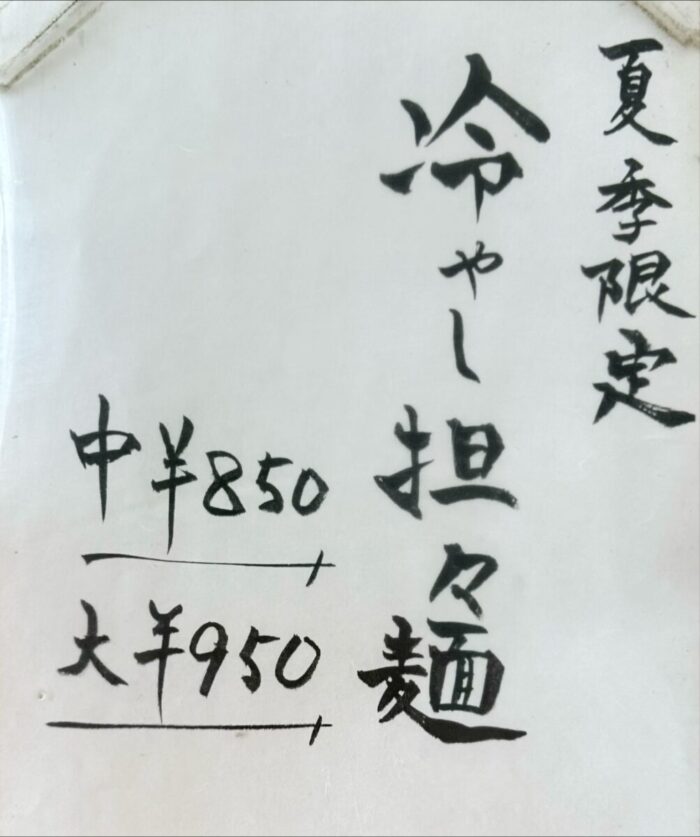 夏季限定
冷やし担々麺
中 ¥850
大 ¥950